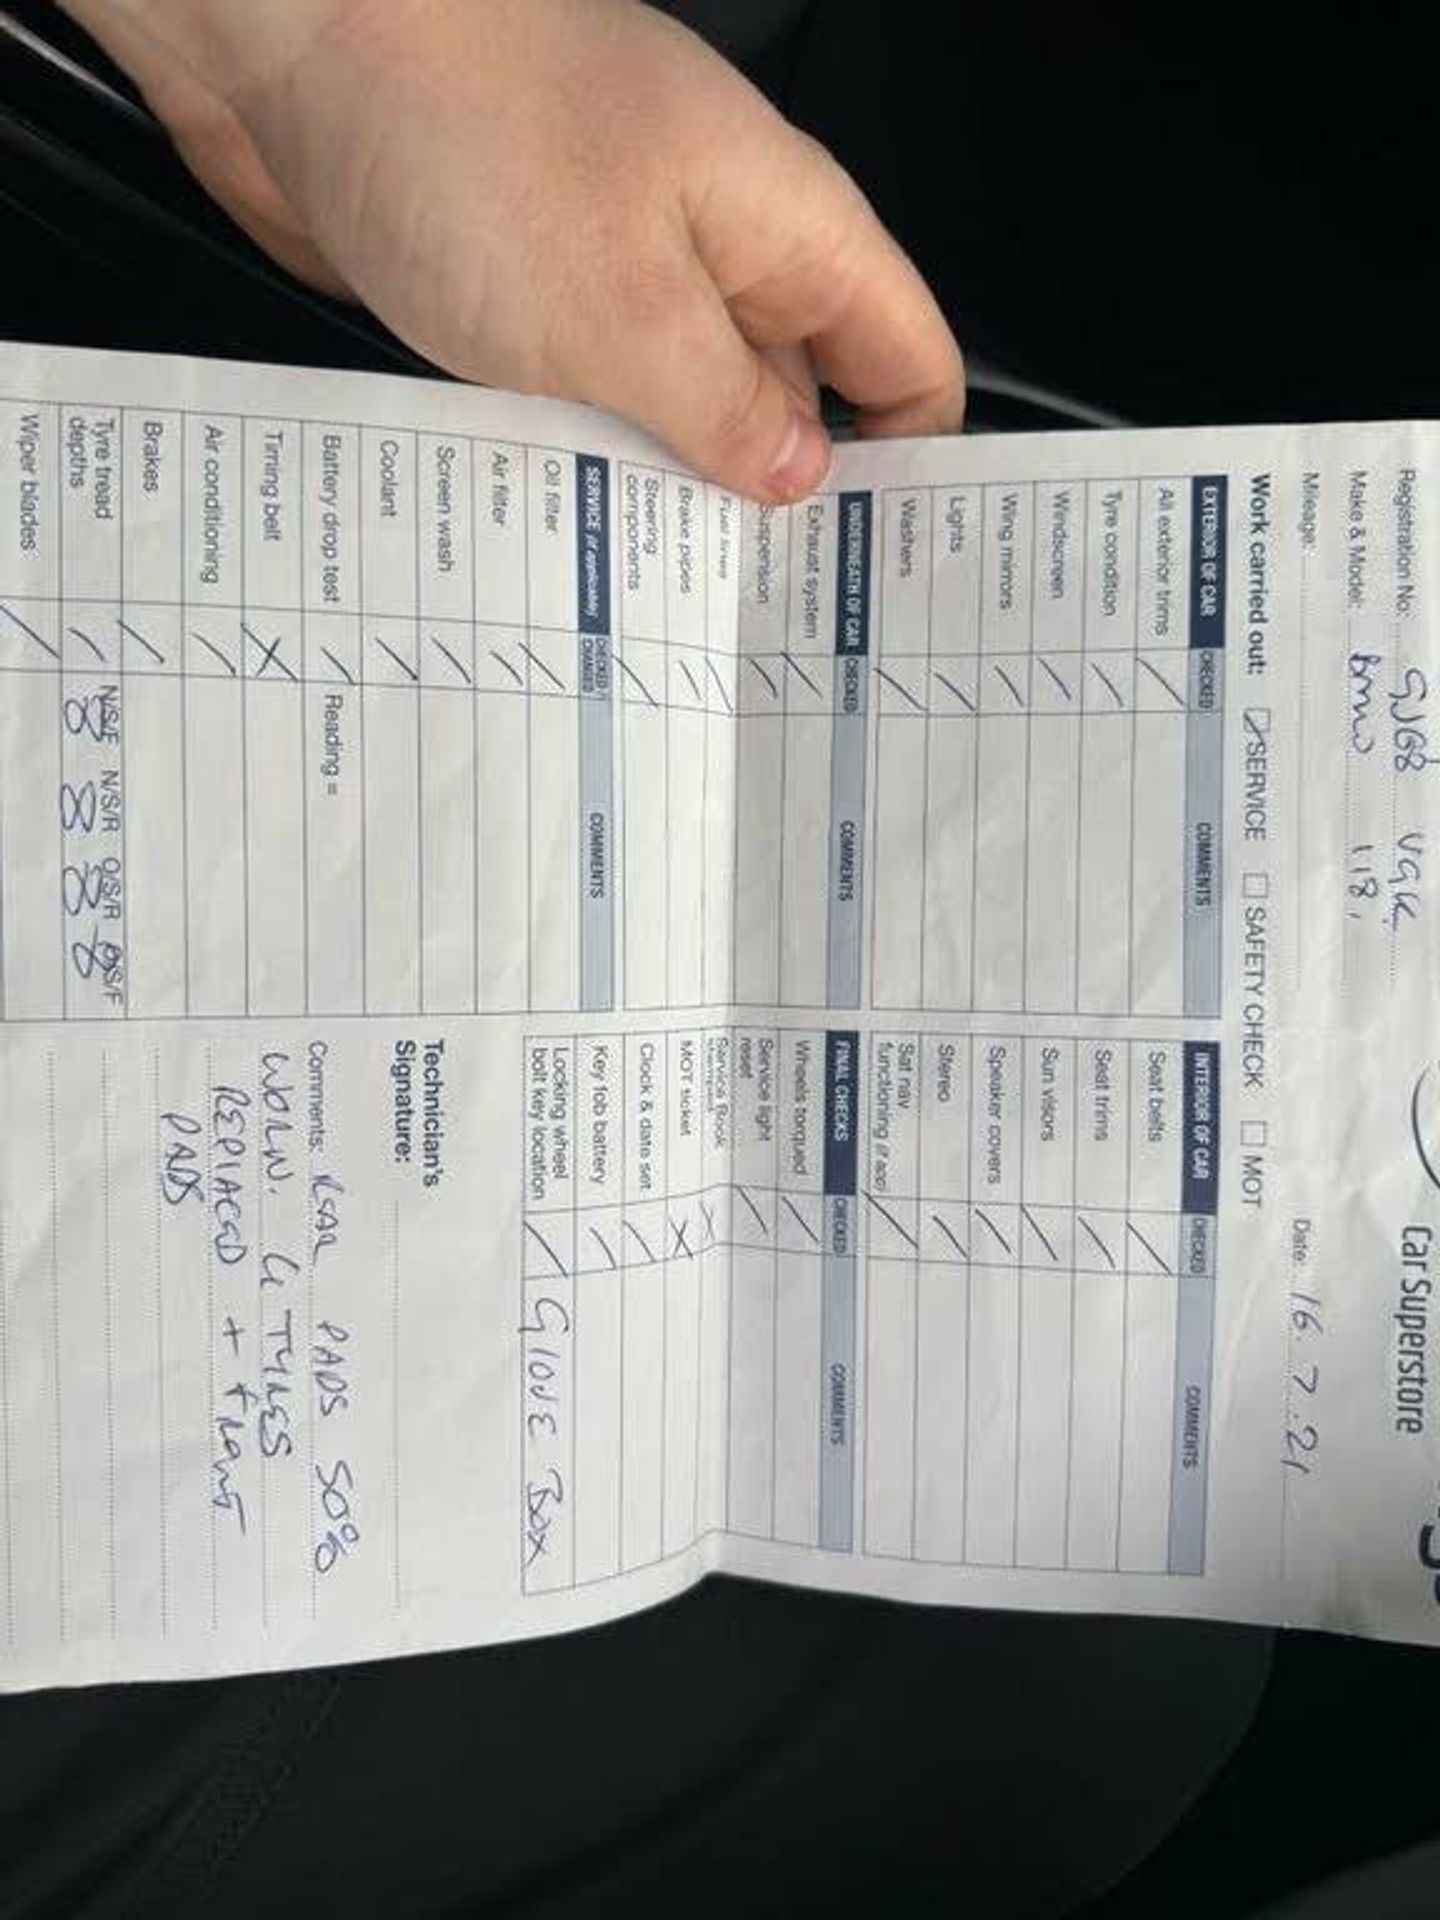 Car Superstore
Registration No: GJ68 VGK
Make & Model: Bmw 118i
Mileage: Date: 16.7.21
Work carried out: SERVICE SAFETY CHECK MOT
EXTERIOR OF CAR CHECKED COMMENTS
All exterior trims /
Tyre condition /
Windscreen /
Wing mirrors /
Lights /
Washers /
INTERIOR OF CAR CHECKED COMMENTS
Seat belts /
Seat trims /
Sun visors /
Speaker covers /
Stereo /
Sat nav
functioning (if app) /
UNDERNEATH OF CAR CHECKED COMMENTS
Exhaust system /
Suspension /
Fuel lines /
Brake pipes /
Steering
components /
FINAL CHECKS CHECKED COMMENTS
Wheels torqued /
Service light
reset /
Service Book
stamped
MOT ticket X
Clock & date set /
Key fob battery /
Locking wheel
bolt key location / GLOVE BOX
SERVICE (if applicable) CHECKED / CHANGED COMMENTS
Oil filter /
Air filter /
Screen wash /
Coolant /
Battery drop test / Reading =
Timing belt X
Air conditioning /
Brakes /
Tyre tread
depths / N/S/F N/S/R O/S/R O/S/F
8 8 8 8
Wiper blades /
Technician's
Signature:
Comments: REAR PADS 50%
WORN. 4 TYRES
REPLACED + FRONT
PADS